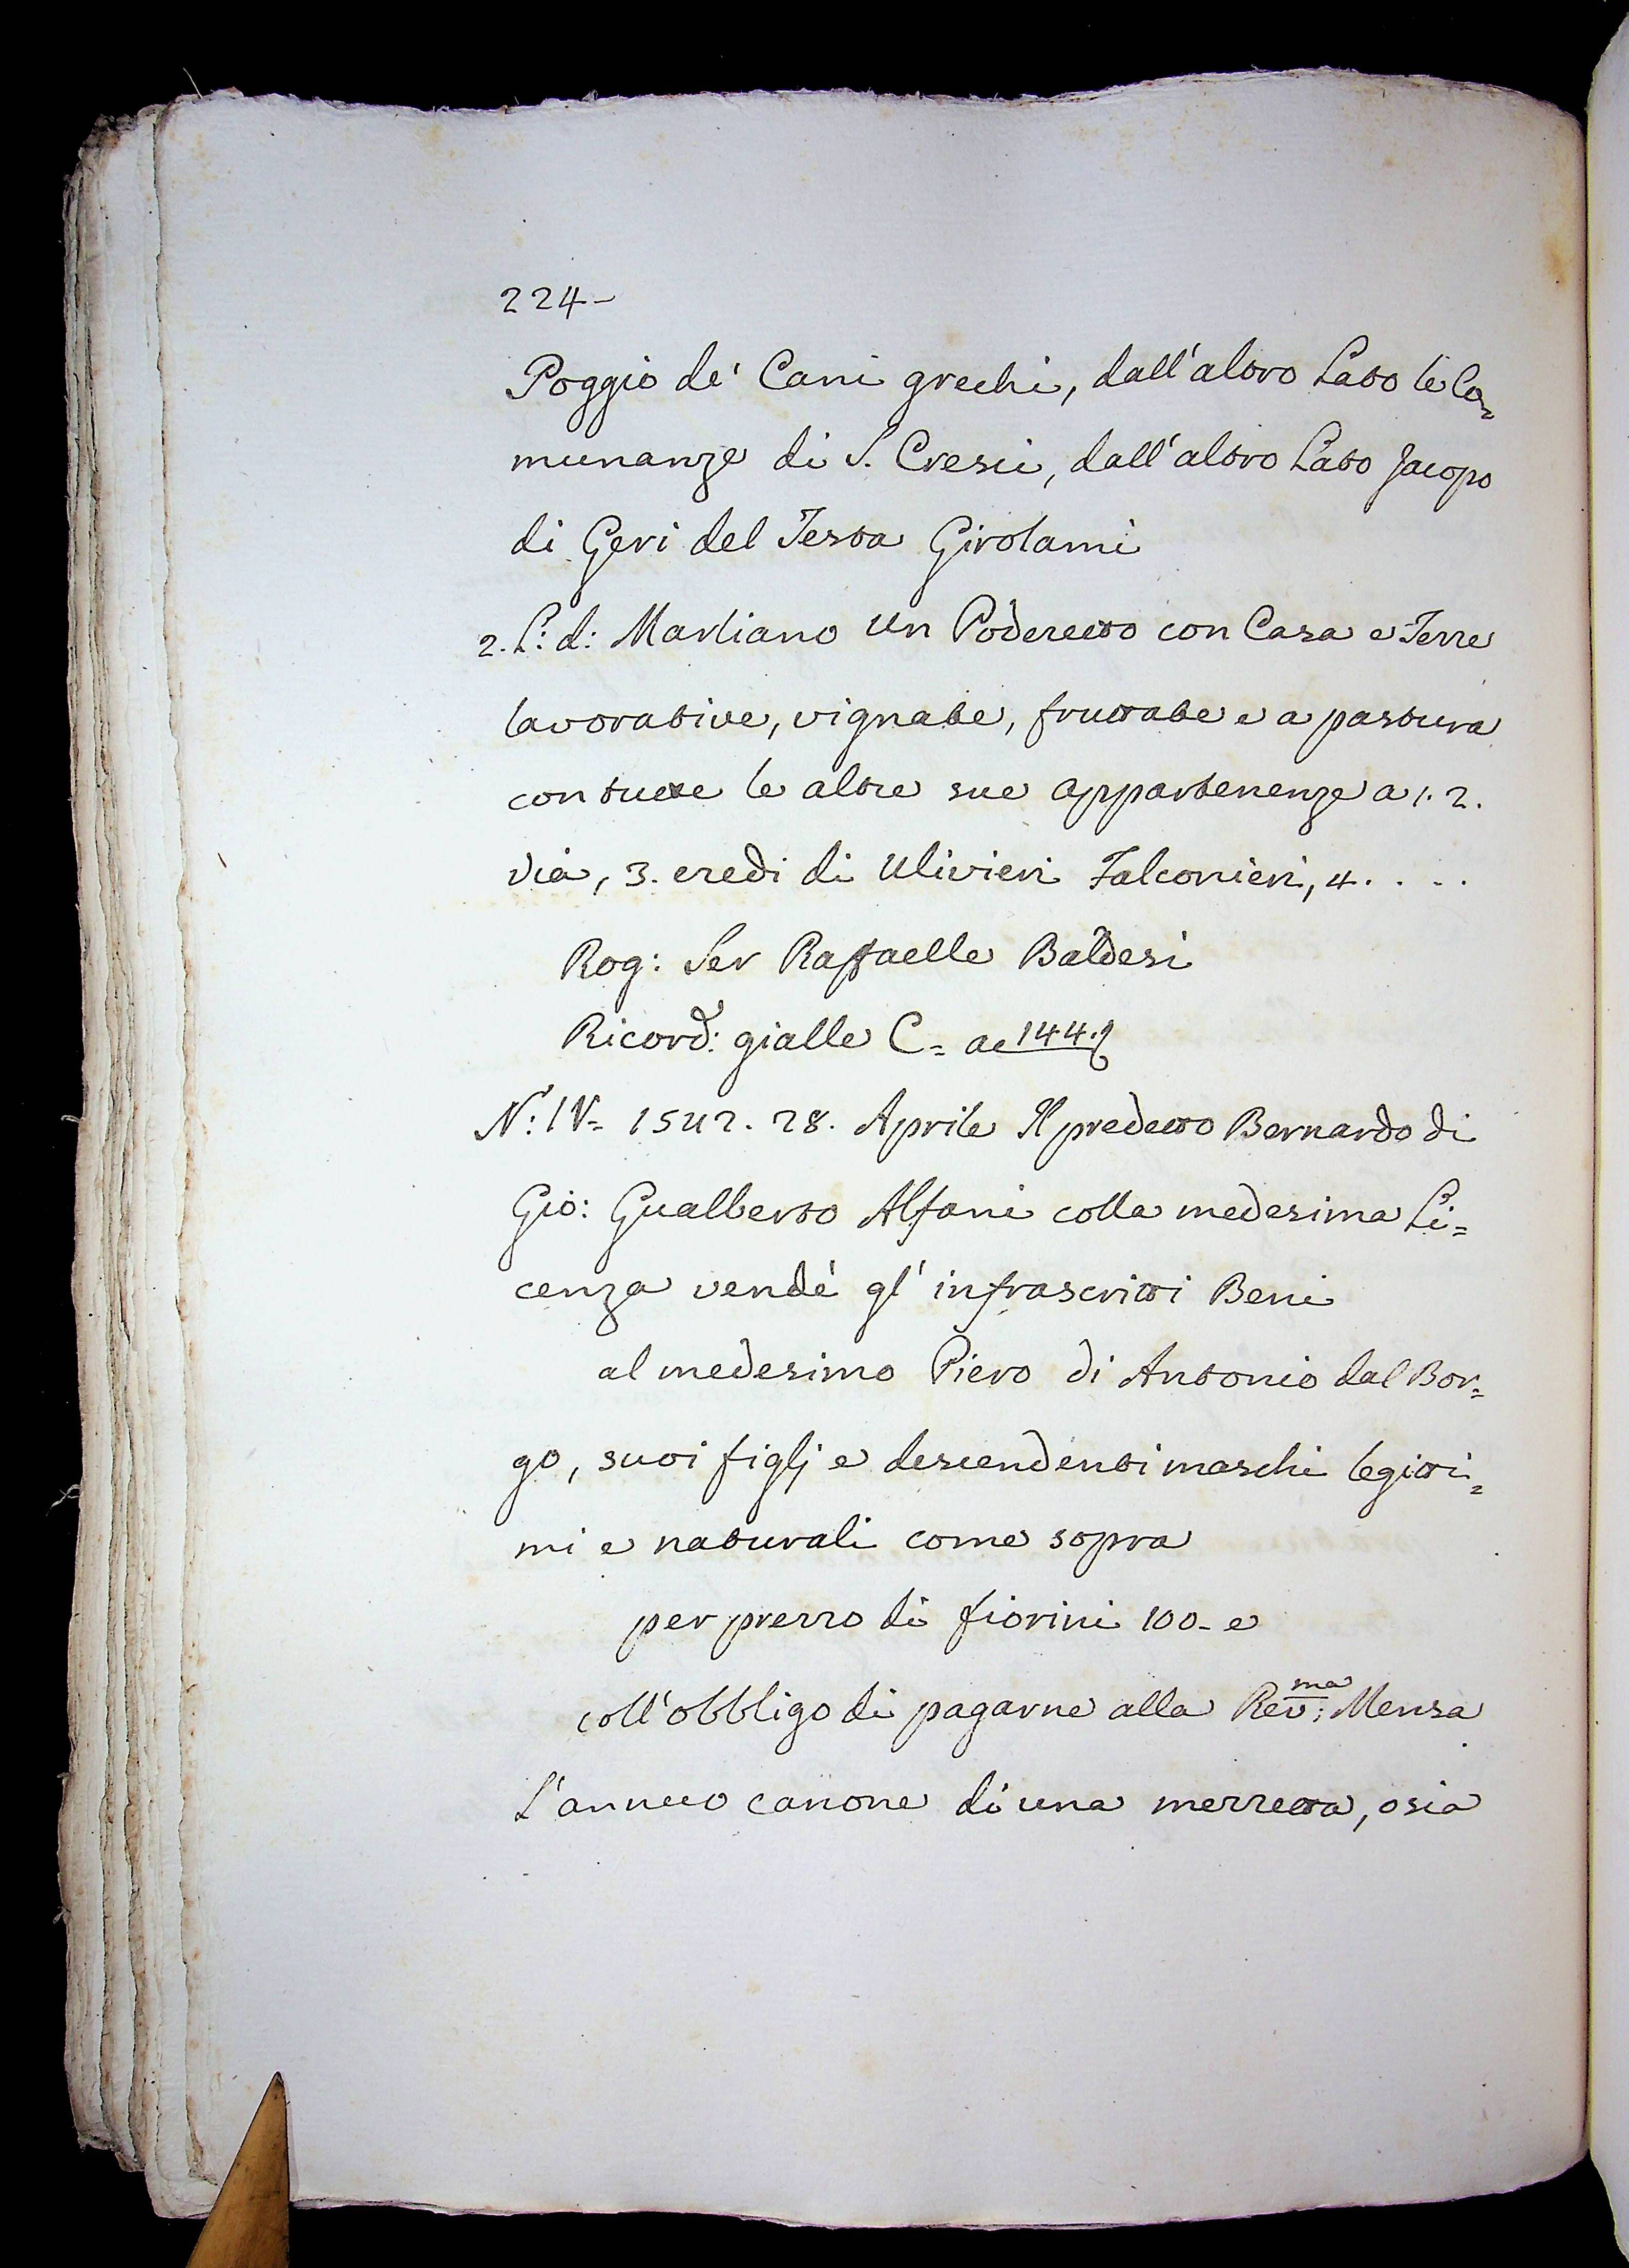 224-
Poggio de' Cani grechi, dall'altro Lato le Co=
munanze di S. Cresci, dall'altro Lato Jacopo
di Geri del Testa Girolami
2. L: d: Marliano un Poderetto con Casa e Terre
lavorative, vignate, fruttate e a pastura
con tutte le altre sue appartenenze a 1. 2.
via, 3. eredi di Ulivieri Falconieri, 4. . . .
Rog: Ser Raffaelle Baldesi
Ricord: gialle C= ac 144.
N: IV= 1542. 28. Aprile Il predetto Bernardo di
Gio: Gualberto Alfani colla medesima Li=
cenza vendè gl' infrascritti Beni
al medesimo Piero di Antonio dal Bor=
go, suoi figlj e descendenti maschi legitti=
mi e naturali come sopra
per prezzo di fiorini 100- e
coll'obbligo di pagarne alla Rev:ma Mensa
L'annuo canone di una mezzetta, osia